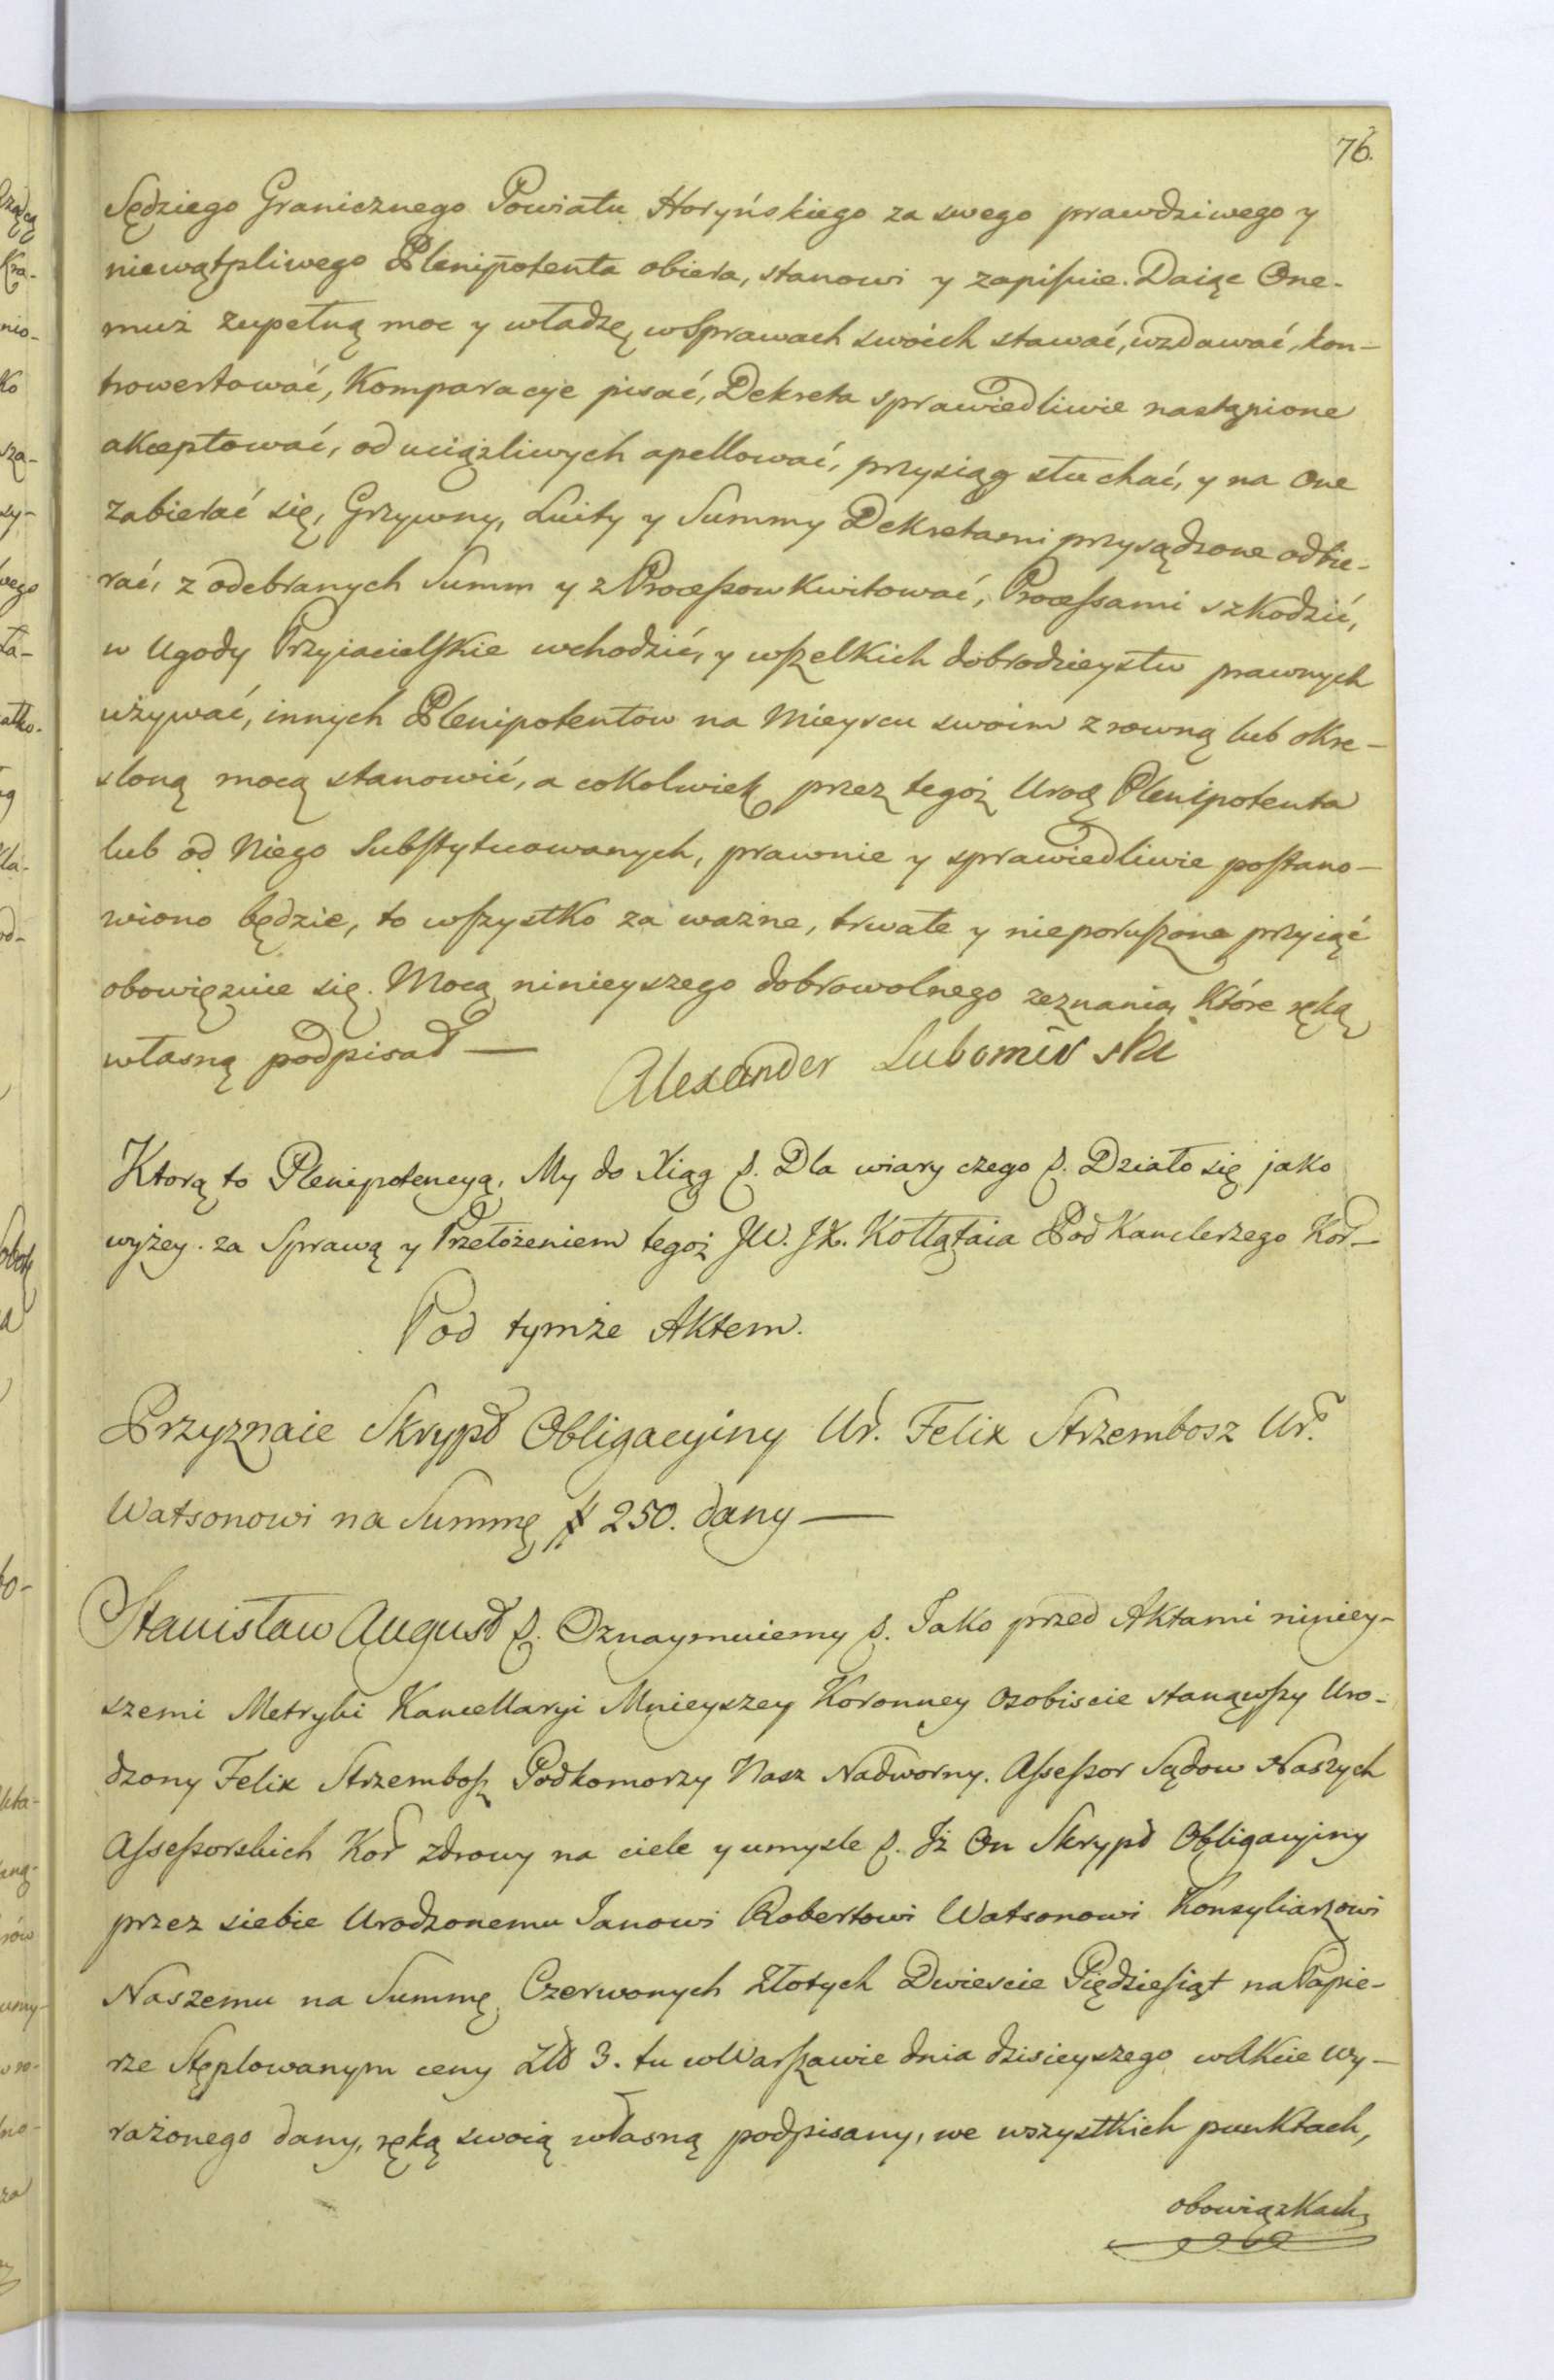 76.
Sędziego Granicznego Powiatu Horyńskiego za swego prawdziwego y
niewątpliwego Plenipotenta obiera, stanowi y zapisuie. Daiąc One-
muż zupełną moc y władzę w Sprawach swoich stawać, wzdawać, kon-
trowertować, Komparacye pisać, Dekreta sprawiedliwie nastąpione
akceptować, od uciązliwych apellować, przysiąg słuchać, y na One
zabierać się, Grzywny, Luity y Summy Dekretami przysądzone odbie-
rać, z odebranych Summ y z Processow Kwitować, Processami szkodzić,
w Ugody Przyiacielskie wchodzić, y wszelkich dobrodzieystw prawnych
używać, innych Plenipotentow na Mieyscu swoim z rowną lub okre-
sloną mocą stanowić, a cokolwiek przez tegoż Urog Plenipotenta
lub od Niego Substytuowanych, prawnie y sprawiedliwie postano-
wiono będzie, to wszystko za ważne, trwałe y nieporuszone przyiąć
obowięzuie się. Mocą ninieyszego dobrowolnego zeznania, Które ręką
własną podpisał —
Alexander Lubomirski
Ktorą to Plenipotencyą, My do Xiąg p. Dla wiary czego p. Działo się jako
wyżey. za Sprawą y Przełożeniem tegoż JW. JX. Kołłątaia Pod Kanclerzego Kor-
Pod tymże Aktem.
Przyznaie Skrypt Obligacyiny Ur. Felix Strzembosz Ur.
Watsonowi na Summę # 250. dany —
Stanisław August p. Oznaymuiemy p. Jako przed Aktami niniey-
szemi Metryki Kancellaryi Mnieyszey Koronney Osobiscie stanąwszy Uro-
dzony Felix Strzembosz Podkomorzy Nasz Nadworny. Assessor Sądow Naszych
Assessorskich Kor zdrowy na ciele y umysle p. Jż On Skrypt Obligacyiny
przez siebie Urodzonemu Janowi Robertowi Watsonowi Konsyliarzowi
Naszemu na Summę Czerwonych Złotych Dwiescie Pięćdziesiąt na Papie-
rze Stęplowanym ceny Zło 3. tu w Warszawie dnia dzisieyszego w Akcie wy-
rażonego dany, ręką swoią własną podpisany, we wszystkich punktach,
obowiązkach,